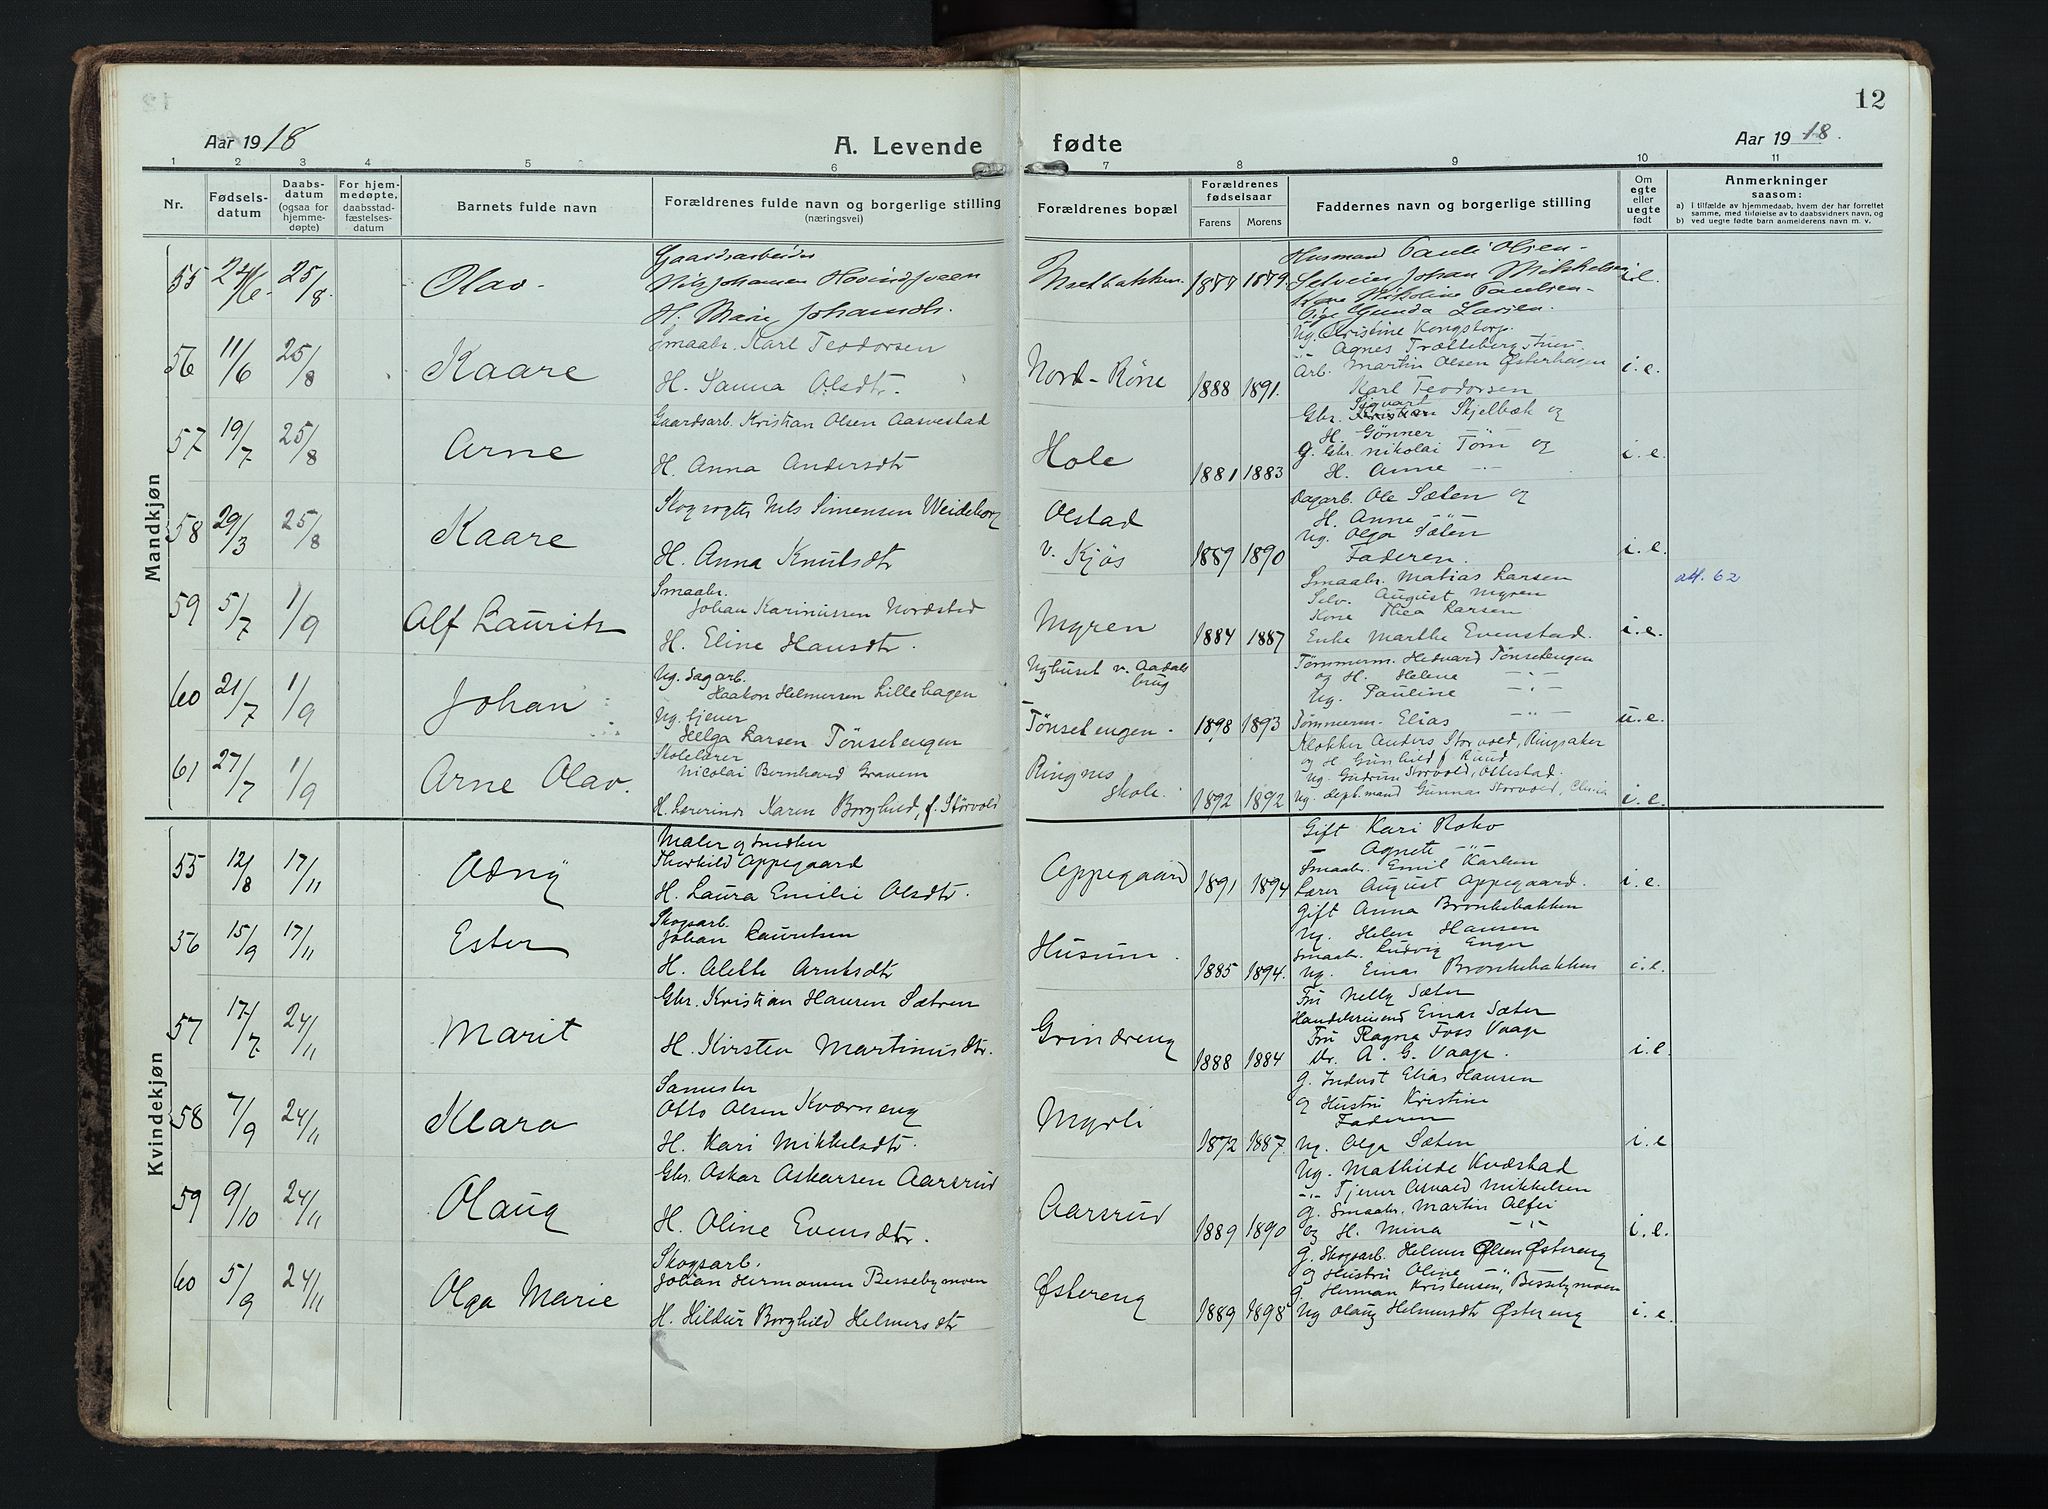 12
Aar 1918
A. Levende
fødte
Aar 1918.
1 2 3 4 5 6 7 8 9 10 11
Nr.
Fødsels-
datum
Daabs-
datum
(ogsaa for
hjemme-
døpte)
For hjem-
medøpte,
daabsstad-
fæstelses-
datum
Barnets fulde navn
Forældrenes fulde navn og borgerlige stilling
(næringsvei)
Forældrenes bopæl
Forældrenes
fødselsaar
Farens Morens
Faddernes navn og borgerlige stilling
Om
egte
eller
uegte
født
Anmerkninger
saasom:
a) I tilfælde av hjemmedaab, hvem der har forrettet
samme, med tilføielse av to daabsvidners navn, og
b) ved uegte fødte barn anmelderens navn m. v.
Mandkjøn
55 25/8 Olav.
Gaardsarbeider
Nils Johansen
H. Marie Johansdtr.
1879.
Husmand Pauli Olsen -
Selveier Johan Mikkelsen
Kone Nikoline Paulsen -
Pige Gunda Larsen.
i.e.
56 11/6 25/8 Kaare
Smaabr. Karl Teodorsen
H. Sanna Olsdtr.
Nord-Røne
1888 1891.
Ug. Kristine Kongstorp.
Agnes
Arb. Martin Olsen Østerhagen
Karl Teodorsen
i.e.
57 19/7 25/8 Arne
Gaardsarb. Kristian Olsen Aasvestad
H. Anna Andersdtr
Hole
1881 1883
Gbr. Sigvart Skjelbæk og
H. Gønner
G. Gbr. Nikolai Tøm og
H. Anne -"-
i.e.
58 29/3 25/8 Kaare
Skogvogter Nils Simensen Weideborg
H. Anna Knutsdtr
Olstad
v. Kjøs
1889 1890
Dagarb. Ole Sæten og
H. Anne -"-
Ug. Olga Sæten
Faderen.
i.e.
att. 62
59 5/7 1/9 Alf Lauritz
Smaabr.
Johan Karinussen Nordstad
H. Eline Hansdtr.
Myren
1884 1887
Smaabr. Matias Larsen
Selv. August Myren
Kone Thea Larsen
Enke Marthe Evenstad.
i.e.
60 21/7 1/9 Johan
Ug. Sagarb.
Haakon Helmersen Lillehagen
Ug. tjener
Helga Larsen Tønsetengen
Nyhuset v. Aadals
brug
- Tønsetengen.
1898 1893
Tømmerm. Hedvard Tønsetengen
og H. Helene -"-
Ug. Pauline -"-
Tømmerm. Elias -"-
u.e.
61 27/7 1/9 Arne Olav.
Skolelærer
Nicolai Bernhard Gravem
H. Lærerinde Karen Borghild, f. Storvold
Ringnes
skole.
1892 1892
Klokker Anders Storvold, Ringsaker
og H. Gunhild f. Ruud
Ug. Gudrun Storvold, Ottestad.
Ug. Gunnar Storvold,
i.e.
Kvindekjøn
55 12/8 17/11 Odny
Maler og snedker
Thorkild Oppegaard
H. Laura Emilie Olsdtr.
Oppegaard
1891 1894
Gift Kari Roko
- Agnete -"-
Smaabr. Emil Karlsen
Lærer August Oppegaard.
i.e.
56 15/9 17/11 Ester
Skogsarb.
Johan Lauritsen
H. Olette Arntsdtr
Husum.
1885 1894.
Gift Anna Bronkebakken
Ug. Helen Hansen
Smaabr. Ludvig Enger
Ug. Einar Bronkebakken
i.e.
57 17/7 24/11 Marit
Gbr. Kristian Hansen Sætren
H. Kirsten Martinusdtr.
Grindreng
1888 1884
Fru Nelly Sæter
Handelsreisend Einar Sæter
Fru Ragna Foss Vaage
Dr. A. G. Vaage.
i.e.
58 7/9 24/11 Klara
Sagmester
Otto Olsen Kværneng
H. Kari Mikkelsdtr.
Myrli
1872 1887.
G. Elias Hansen
og Hustru Kristine
Faderen
Ug. Olga Sæten
i.e
59 9/10 24/11 Olaug
Gbr. Oskar Oskarsen Aarsrud
H. Oline Evensdtr.
Aarsrud
1889 1890
Ug. Mathilde Kvæstad
-"- Tjener Osvald Mikkelsen
G. Smaabr. Martin Alfei
og H. Mina -"-
i.e.
60 5/9 24/11 Olga Marie
Skogsarb.
Johan Hermansen Bessebymoen
H. Hildur Borghild Helmersdtr
Østereng
1889 1898
G. Skogsarb. Helmer Olsen Østereng
og Hustru Oline -"-
G. Herman Kristensen, Bessebymoen
Ug Olaug Helmersdtr Østereng
i.e.